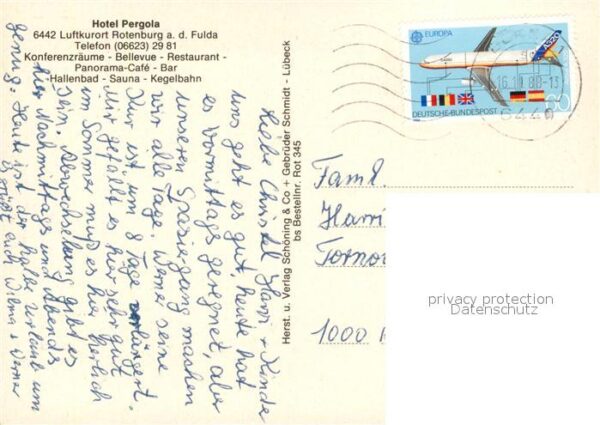 Hotel Pergola
6442 Luftkurort Rotenburg a. d. Fulda
Telefon (06623) 29 81
Konferenzräume - Bellevue - Restaurant -
Panorama-Café - Bar
Hallenbad - Sauna - Kegelbahn
Liebe Christel, Harri + Kinder
uns geht es gut, heute hat
es Vormittags geregnet, aber
unseren Spaziergang machen
wir alle Tage. Werner seine
Kur ist um 8 Tage verlängert.
Mir gefällt es hier sehr gut
im Sommer muß es hier herrlich
sein. Abwechselung gibt es
hier Nachmittags und Abends
genug. Heute ist der halbe Urlaub um
Es grüßt euch Wilma + Werner
Herst. u. Verlag Schöning & Co + Gebrüder Schmidt - Lübeck
bs Bestellnr. Rot 345
EUROPA
A320
DEUTSCHE BUNDESPOST
60
16.10.88-13
6440
Faml.
Harri
1000
privacy protection
Datenschutz